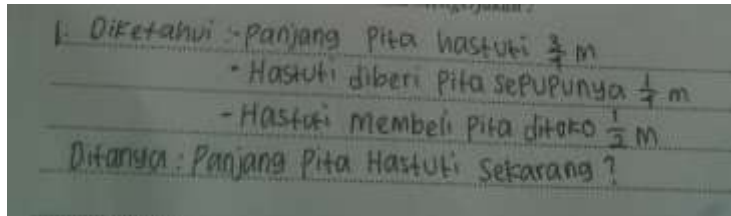 1. Diketahui :- Panjang Pita hastuti 3/4 m
- Hastuti diberi Pita sepupunya 1/4 m
- Hastuti Membeli Pita ditoko 1/2 M
Ditanya : Panjang Pita Hastuti Sekarang ?